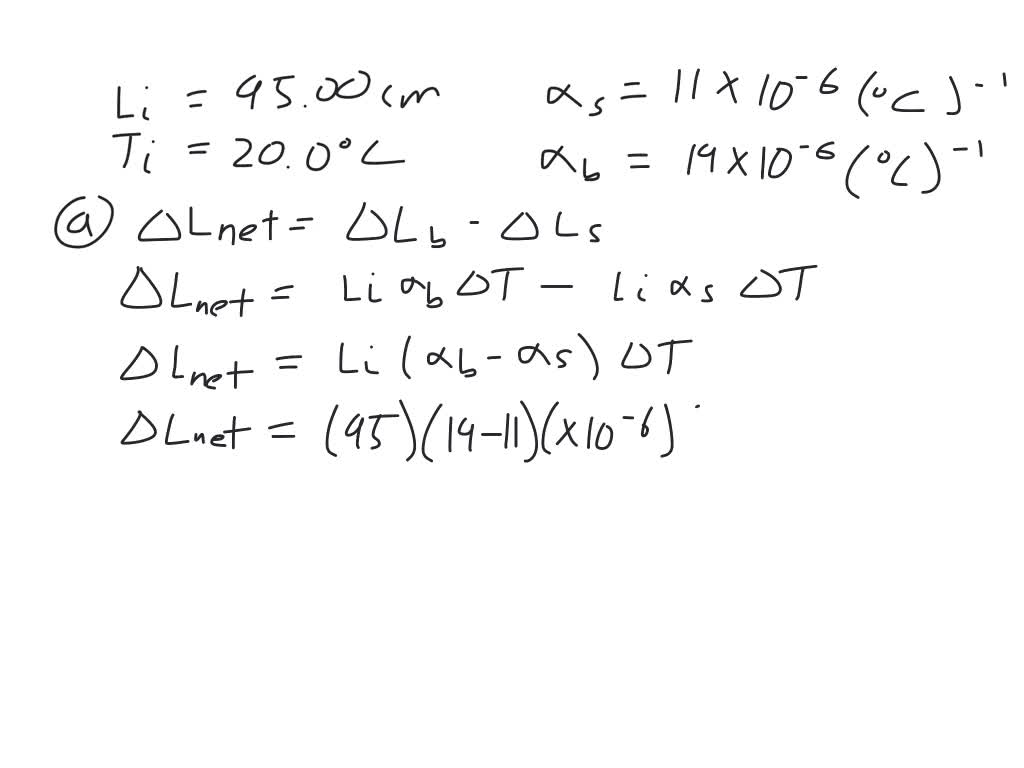 Li = 95.00 cm αs = 11 × 10⁻⁶ (°C)⁻¹
Ti = 20.0°C αb = 19 × 10⁻⁶ (°C)⁻¹
ⓐ ΔLnet = ΔLb - ΔLs
ΔLnet = Li αb ΔT - Li αs ΔT
ΔLnet = Li (αb - αs) ΔT
ΔLnet = (95)(19-11)(×10⁻⁶)